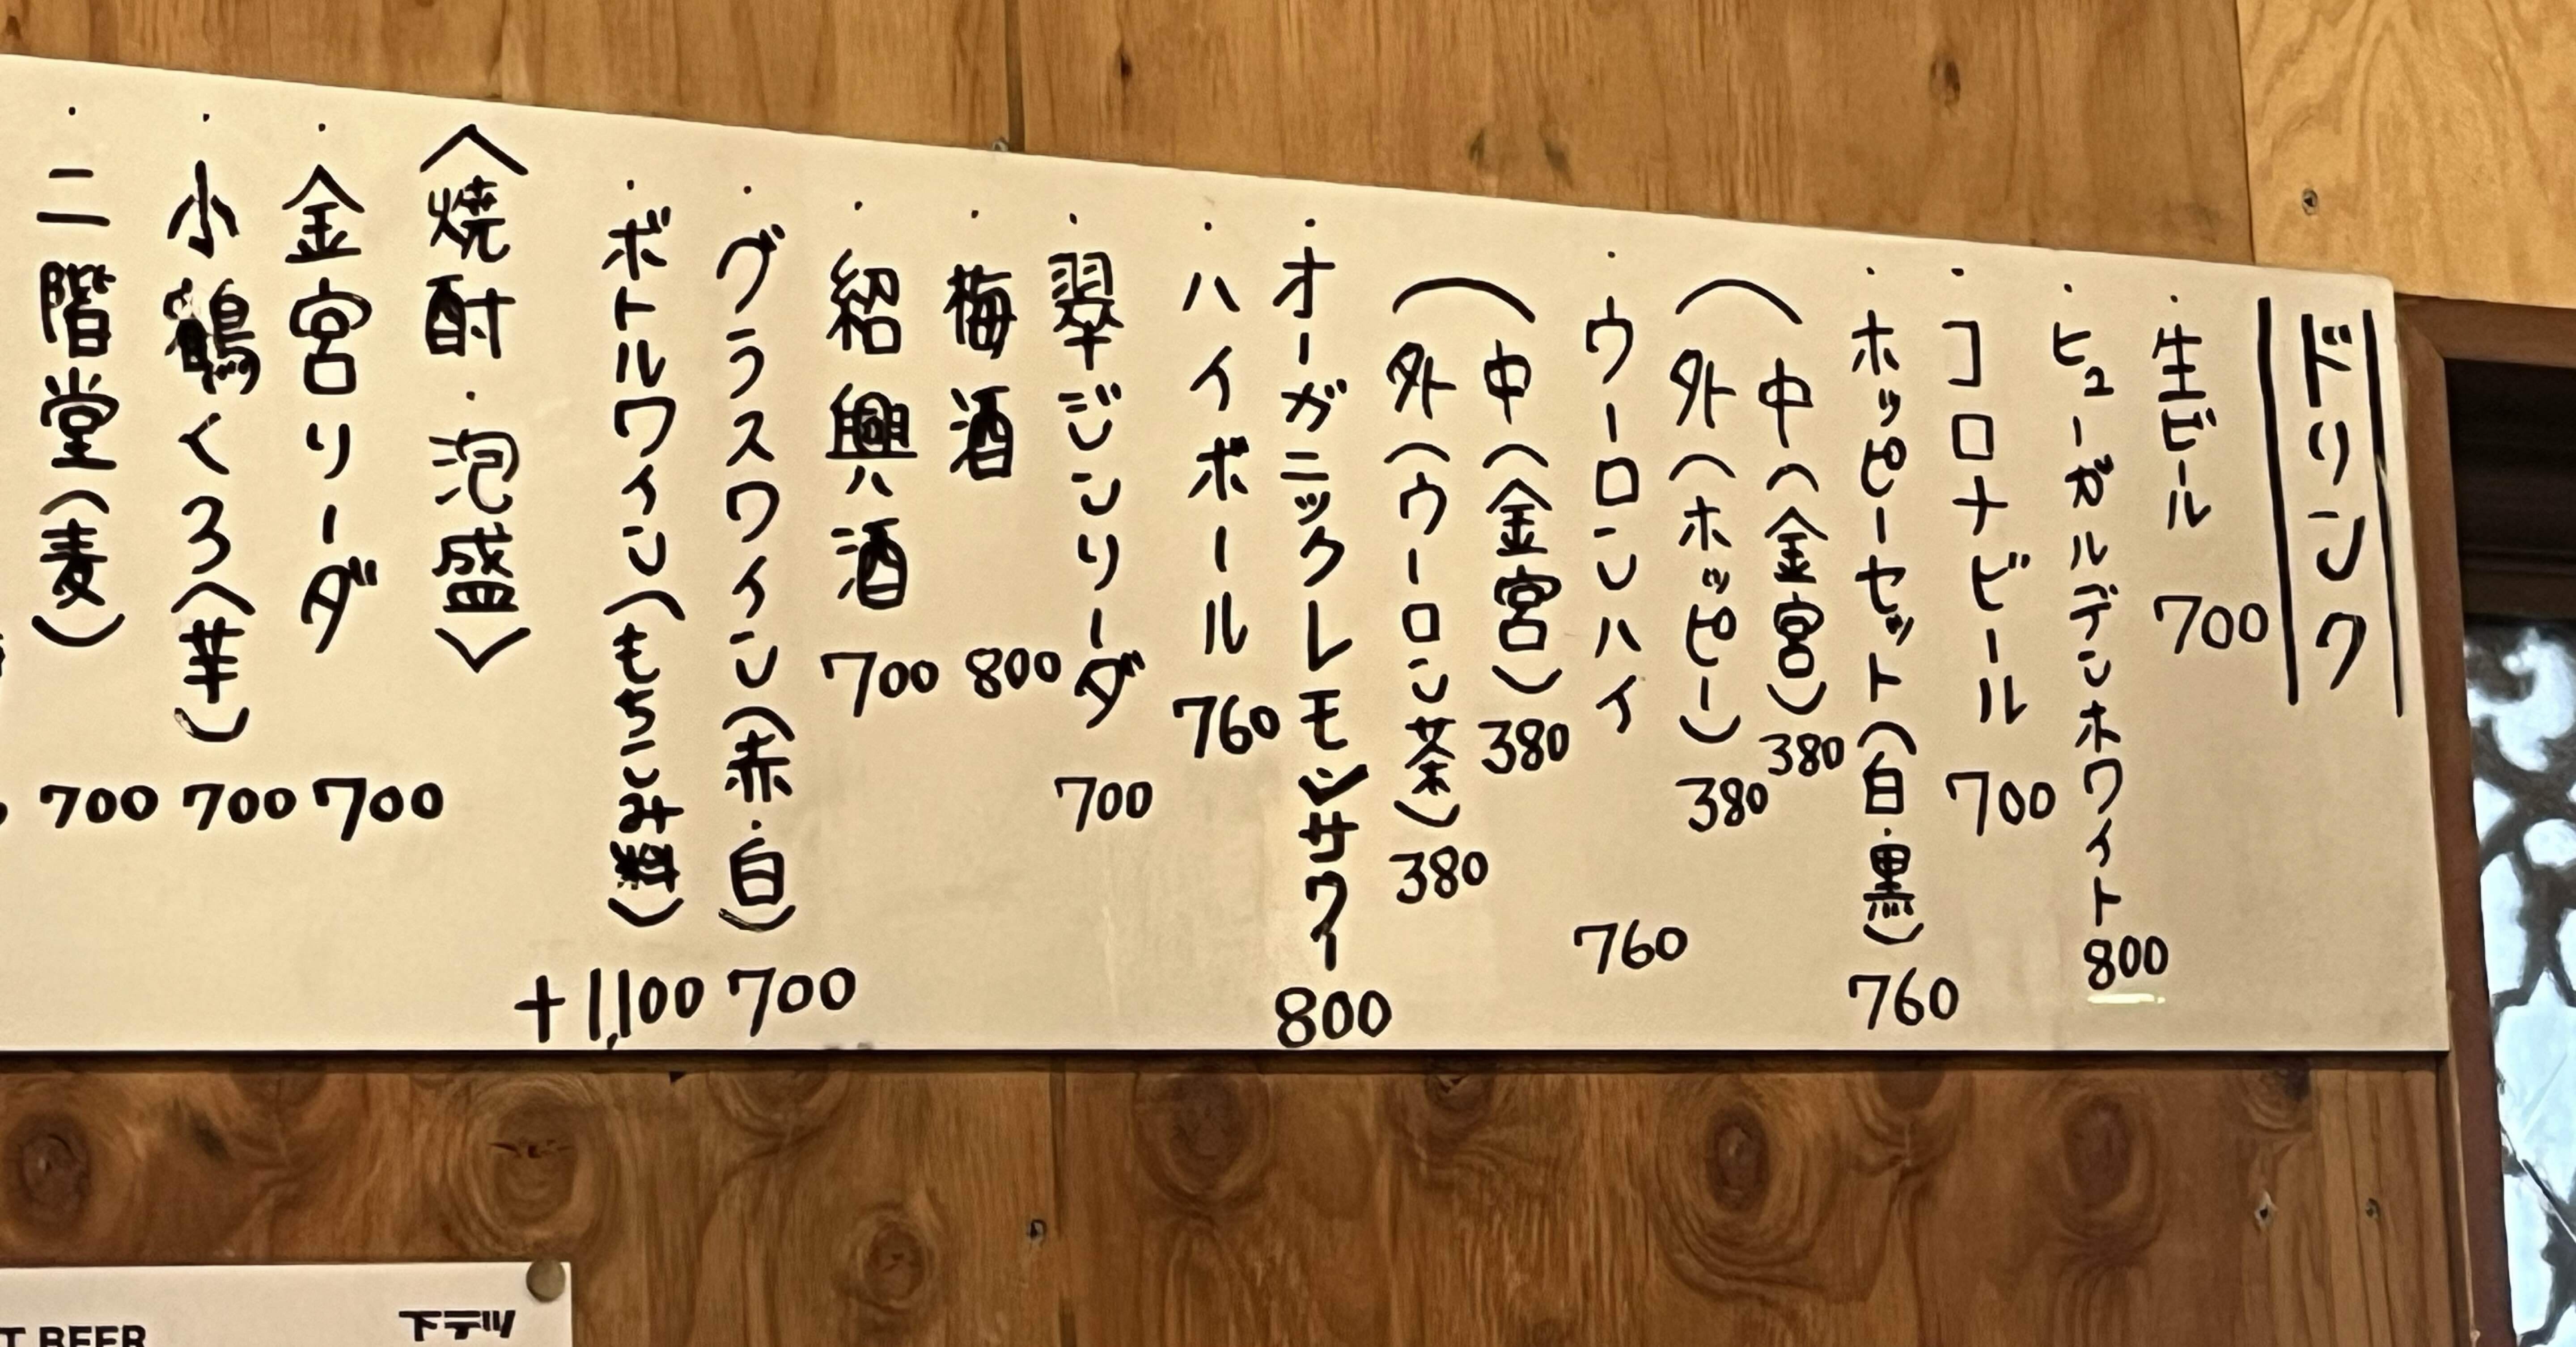 ドリンク
・生ビール 700
・ヒューガルデンホワイト 800
・コロナビール 700
・ホッピーセット(白・黒) 760
(中(金宮) 380
外(ホッピー) 380
・ウーロンハイ 760
(中(金宮) 380
外(ウーロン茶) 380
・オーガニックレモンサワー 800
・ハイボール 760
・翠ジンソーダ 700
・梅酒 800
・紹興酒 700
・グラスワイン(赤・白) 700
・ボトルワイン(もちこみ料) +1,100
〈焼酎・泡盛〉
・金宮ソーダ 700
・小鶴くろ(芋) 700
・二階堂(麦) 700
T BEER
下テツ